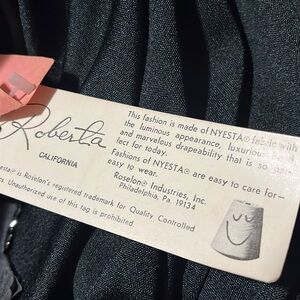 Roberta
CALIFORNIA
This fashion is made of NYESTA® fabric with
the luminous appearance, luxurious
and marvelous drapeability that is so
fect for today.
Fashions of NYESTA® are easy to care for—
easy to wear.
Roselon® Industries, Inc.
Philadelphia, Pa. 19134
esta® is Roselon's registered trademark for Quality Controlled
rics. Unauthorized use of this tag is prohibited.